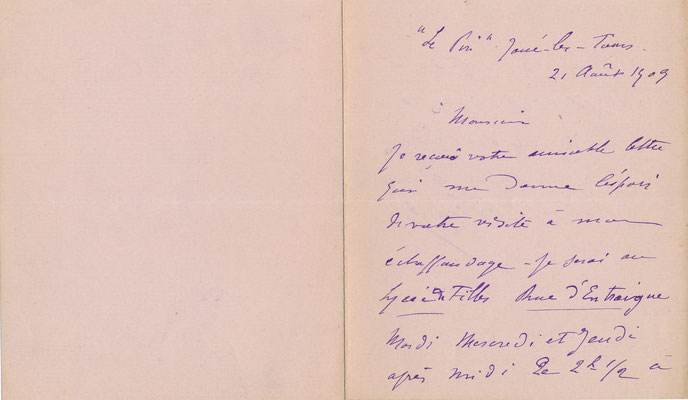 "Le Pin" Joué-les-Tours.
21 Août 1909
Monsieur
Je reçois votre aimable lettre
qui me donne l'espoir
de votre visite à mon
échaffaudage - Je serai au
Lycée de Filles Rue d'Entraigue
Mardi Mercredi et Jeudi
après midi De 2h 1/2 à